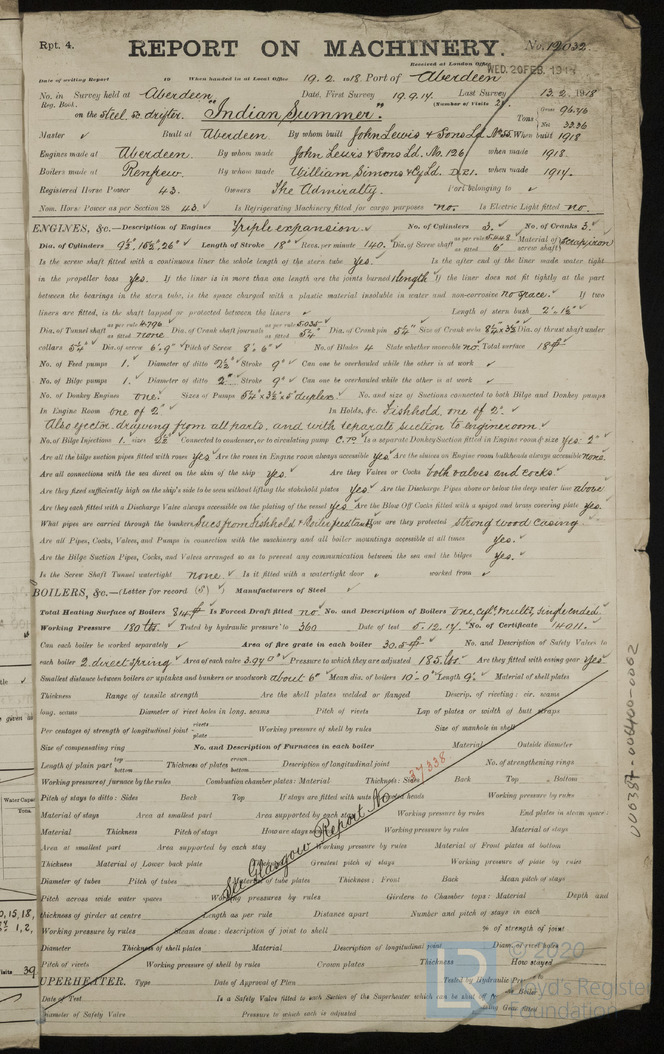 Rpt. 4. REPORT ON MACHINERY. No. 12032
Received at London Office WED. 20 FEB. 1918
Date of writing Report 19 When handed in at Local Office 19.2.1918 Port of Aberdeen
No. in Survey held at Aberdeen Date, First Survey 19.9.17. Last Survey 13.2.1918
Reg. Book. (Number of Visits
on the steel sc drifter. "Indian Summer." Tons Gross 96.46 Net 38.36
Master ✓ Built at Aberdeen By whom built John Lewis & Sons Ld. When built 1918
Engines made at Aberdeen By whom made John Lewis & Sons Ld. No. 126 when made 1918.
Boilers made at Renfrew By whom made William Simons & Cy Ld. when made 1917.
Registered Horse Power 43. Owners The Admiralty. Port belonging to ✓
Nom. Horse Power as per Section 28 43. Is Refrigerating Machinery fitted for cargo purposes no. Is Electric Light fitted no.
ENGINES, &c.—Description of Engines Triple expansion. No. of Cylinders 3. No. of Cranks 3.
Dia. of Cylinders 9½", 15½", 26" Length of Stroke 18" Revs. per minute 140. Dia. of Screw shaft as per rule 5.448 as fitted 6" Material of screw shaft scrap iron
Is the screw shaft fitted with a continuous liner the whole length of the stern tube Yes. Is the after end of the liner made water tight
in the propeller boss yes. If the liner is in more than one length are the joints burned 1 length If the liner does not fit tightly at the part
between the bearings in the stern tube, is the space charged with a plastic material insoluble in water and non-corrosive no space. If two
liners are fitted, is the shaft lapped or protected between the liners ✓ Length of stern bush 2'-1½"
Dia. of Tunnel shaft as per rule 4.796 as fitted none Dia. of Crank shaft journals as per rule 5.035 as fitted 5¼" Dia. of Crank pin 5¼" Size of Crank webs Dia. of thrust shaft under
collars 5¼" Dia. of screw 6'-9" Pitch of Screw 8'-6" No. of Blades 4 State whether moveable no. Total surface 18
No. of Feed pumps 1. Diameter of ditto 2½" Stroke 9" Can one be overhauled while the other is at work ✓
No. of Bilge pumps 1. Diameter of ditto 2" Stroke 9" Can one be overhauled while the other is at work ✓
No. of Donkey Engines one. Sizes of Pumps 5¼" x 3½" x 5" duplex. No. and size of Suctions connected to both Bilge and Donkey pumps
In Engine Room one of 2" In Holds, &c. Fishhold, one of 2".
Also ejector drawing from all parts, and with separate suction to engineroom.
No. of Bilge Injections 1. sizes 2½" Connected to condenser, or to circulating pump C.P. Is a separate Donkey Suction fitted in Engine room & size Yes: 2"
Are all the bilge suction pipes fitted with roses yes Are the roses in Engine room always accessible yes Are the sluices on Engine room bulkheads always accessible none.
Are all connections with the sea direct on the skin of the ship yes. Are they Valves or Cocks both valves and cocks.
Are they fixed sufficiently high on the ship's side to be seen without lifting the stokehold plates yes. Are the Discharge Pipes above or below the deep water line above
Are they each fitted with a Discharge Valve always accessible on the plating of the vessel yes Are the Blow Off Cocks fitted with a spigot and brass covering plate yes.
What pipes are carried through the bunkers Sucs from fishhold & Boiler feed tank How are they protected strong wood casing.
Are all Pipes, Cocks, Valves, and Pumps in connection with the machinery and all boiler mountings accessible at all times yes.
Are the Bilge Suction Pipes, Cocks, and Valves arranged so as to prevent any communication between the sea and the bilges yes.
Is the Screw Shaft Tunnel watertight none. Is it fitted with a watertight door ✓ worked from ✓
BOILERS, &c.—(Letter for record (S) ) Manufacturers of Steel
Total Heating Surface of Boilers 814 Is Forced Draft fitted no. No. and Description of Boilers One, cyl., mult., single ended.
Working Pressure 180 lbs. Tested by hydraulic pressure to 360 Date of test 5.12.17. No. of Certificate 14011.
Can each boiler be worked separately ✓ Area of fire grate in each boiler 30.5 No. and Description of Safety Valves to
each boiler 2. direct spring Area of each valve 3.97 Pressure to which they are adjusted 185 lbs. Are they fitted with easing gear yes
Smallest distance between boilers or uptakes and bunkers or woodwork about 6" Mean dia. of boilers 10'-0" Length 9'. Material of shell plates
Thickness Range of tensile strength Are the shell plates welded or flanged Descrip. of riveting: cir. seams
long. seams Diameter of rivet holes in long. seams Pitch of rivets Lap of plates or width of butt straps
Per centages of strength of longitudinal joint rivets plate Working pressure of shell by rules Size of manhole in shell
Size of compensating ring No. and Description of Furnaces in each boiler Material Outside diameter
Length of plain part top bottom Thickness of plates crown bottom Description of longitudinal joint No. of strengthening rings
Working pressure of furnace by the rules Combustion chamber plates: Material Thickness: Sides Back Top Bottom
Pitch of stays to ditto: Sides Back Top If stays are fitted with nuts or riveted heads Working pressure by rules
Material of stays Area at smallest part Area supported by each stay Working pressure by rules End plates in steam space:
Material Thickness Pitch of stays How are stays secured Working pressure by rules Material of stays
Area at smallest part Area supported by each stay Working pressure by rules Material of Front plates at bottom
Thickness Material of Lower back plate Thickness Greatest pitch of stays Working pressure of plate by rules
Diameter of tubes Pitch of tubes Material of tube plates Thickness: Front Back Mean pitch of stays
Pitch across wide water spaces Working pressures by rules Girders to Chamber tops: Material Depth and
thickness of girder at centre Length as per rule Distance apart Number and pitch of stays in each
Working pressure by rules Steam dome: description of joint to shell % of strength of joint
Diameter Thickness of shell plates Material Description of longitudinal joint Diam. of rivet holes
Pitch of rivets Working pressure of shell by rules Crown plates Thickness How stayed
UPERHEATER. Type Date of Approval of Plan Tested by Hydraulic Pressure to
Date of Test Is a Safety Valve fitted to each Section of the Superheater which can be shut off from the Boiler
Diameter of Safety Valve Pressure to which each is adjusted Is Easing Gear fitted
See Glasgow Report No 37338
006387-006400-0062
Water Capac
Tons.
0, 15, 18,
1, 2,
isits 39
LR
© 2020
Lloyd's Register
Foundation